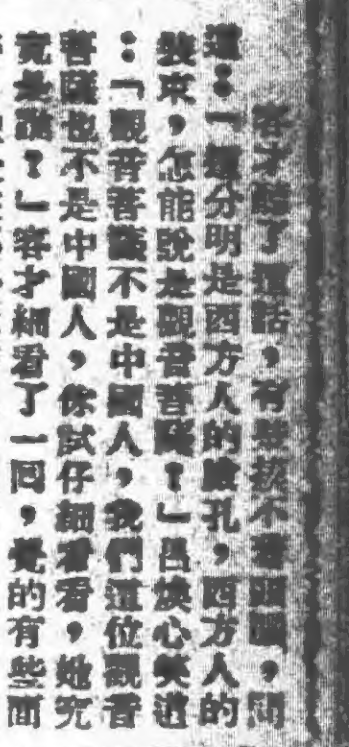 客才聽了這話，有些摸不着頭腦，問
道：「這分明是西方人的臉孔，西方人的
裝束，怎能說是觀音菩薩？」呂煥心笑道
：「觀音菩薩不是中國人，我們這位觀音
菩薩也不是中國人，你試仔細看看，她究
竟是誰？」客才細看了一回，覺的有些面